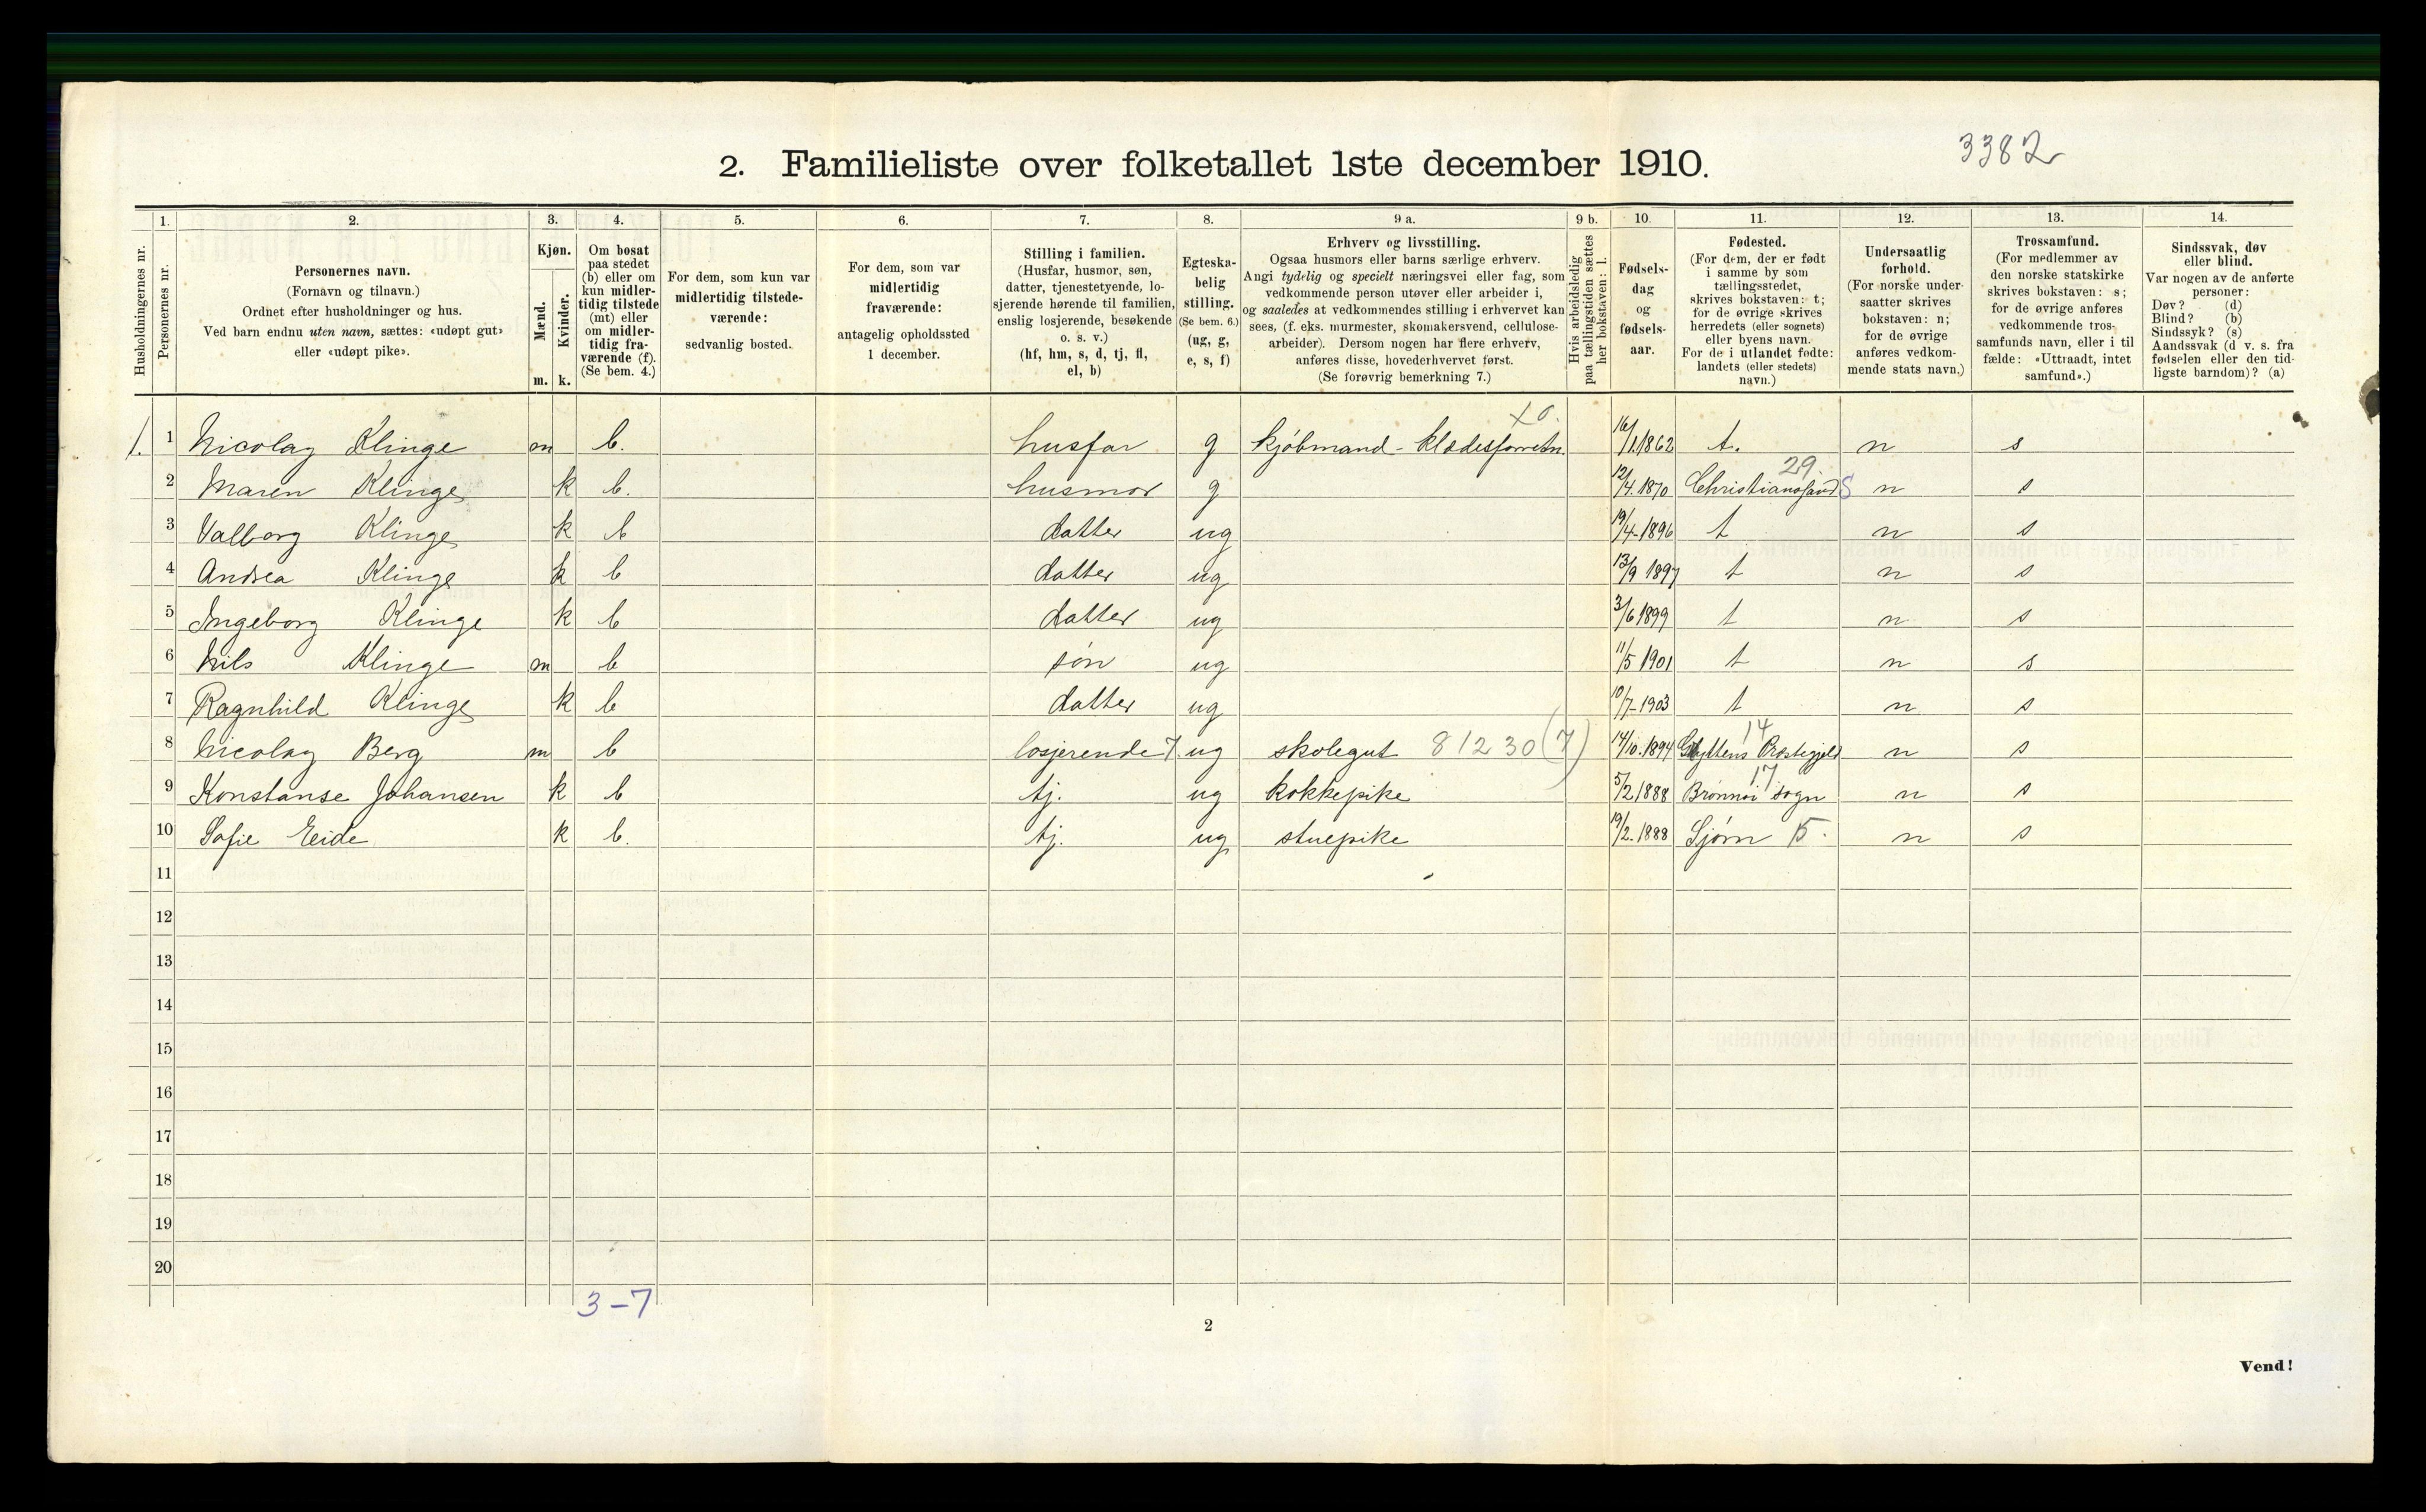 3382
2. Familieliste over folketallet 1ste december 1910.
1. 2. 3. 4. 5. 6. 7. 8. 9 a. 9 b. 10. 11. 12. 13. 14.
Husholdningernes nr.
Personernes nr.
Personernes navn.
(Fornavn og tilnavn.)
Ordnet efter husholdninger og hus.
Ved barn endnu uten navn, sættes: «udøpt gut»
eller «udøpt pike».
Kjøn.
Mænd.
Kvinder.
m. k.
Om bosat
paa stedet
(b) eller om
kun midler-
tidig tilstede
(mt) eller
om midler-
tidig fra-
værende (f).
(Se bem. 4.)
For dem, som kun var
midlertidig tilstede-
værende:
sedvanlig bosted.
For dem, som var
midlertidig
fraværende:
antagelig opholdssted
1 december.
Stilling i familien.
(Husfar, husmor, søn,
datter, tjenestetyende, lo-
sjerende hørende til familien,
enslig losjerende, besøkende
o. s. v.)
(hf, hm, s, d, tj, fl,
el, b)
Egteska-
belig
stilling.
(Se bem. 6.)
(ug, g,
e, s, f)
Erhverv og livsstilling.
Ogsaa husmors eller barns særlige erhverv.
Angi tydelig og specielt næringsvei eller fag, som
vedkommende person utøver eller arbeider i,
og saaledes at vedkommendes stilling i erhvervet kan
sees, (f. eks. murmester, skomakersvend, cellulose-
arbeider). Dersom nogen har flere erhverv,
anføres disse, hovederhvervet først.
(Se forøvrig bemerkning 7.)
Hvis arbeidsledig
paa tællingstiden sættes
her bokstaven: l.
Fødsels-
dag
og
fødsels-
aar.
Fødested.
(For dem, der er født
i samme by som
tællingsstedet,
skrives bokstaven: t;
for de øvrige skrives
herredets (eller sognets)
eller byens navn.
For de i utlandet fødte:
landets (eller stedets)
navn.)
Undersaatlig
forhold.
(For norske under-
saatter skrives
bokstaven: n;
for de øvrige
anføres vedkom-
mende stats navn.)
Trossamfund.
(For medlemmer av
den norske statskirke
skrives bokstaven: s;
for de øvrige anføres
vedkommende tros-
samfunds navn, eller i til
fælde: «Uttraadt, intet
samfund».)
Sindssvak, døv
eller blind.
Var nogen av de anførte
personer:
Døv? (d)
Blind? (b)
Sindssyk? (s)
Aandssvak (d v. s. fra
fødselen eller den tid-
ligste barndom)? (a)
1. 1 Nicolay Klinge m b. husfar g kjøbmand - klædesforretn. 16/1 1862 t. n s
29.
2 Maren Klinge k b. husmor g 12/4. 1870 Christiansand S n s
3 Valborg Klinge k b datter ug 19/4-1896 t n s
4 Andrea Klinge k b datter ug 13/9 1897 t n s
5 Ingeborg Klinge k b datter ug 3/6 1899 t n s
6 Nils Klinge m b søn ug 11/5 1901 t n s
7 Ragnhild Klinge k b datter ug 10/7-1903 t n s
14
8 Nicolay Berg m b losjerende ug skolegut 81230 (7) 14/10. 1894 Præstegjeld n s
17
9 Konstanse Johansen k b tj. ug kokkepike 5/2 1888 Brønnøi sogn n s
10 Sofie Eeide k b. tj. ug stuepike 19/2. 1888 Sjørn 15. n s
11
12
13
14
15
16
17
18
19
20
3-7
2
Vend!